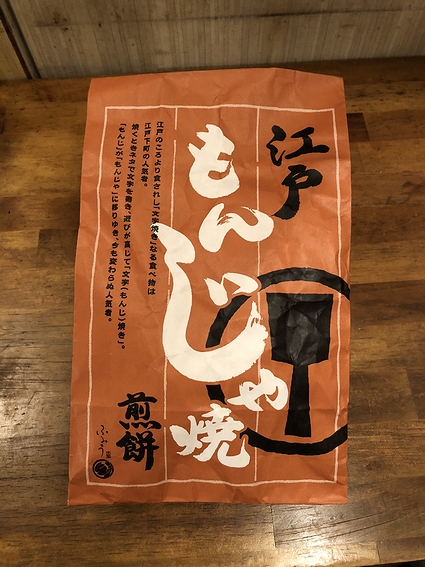 江戸
もんじゃ焼
煎餅
江戸のころより食されし「文字焼き」なる食べ物は
江戸下町の人気者。
焼くときネタで文字を書き、遊びが高じて「文字(もんじ)焼き」。
「もんじ」が「もんじゃ」に移りゆき、今も変わらぬ人気者。